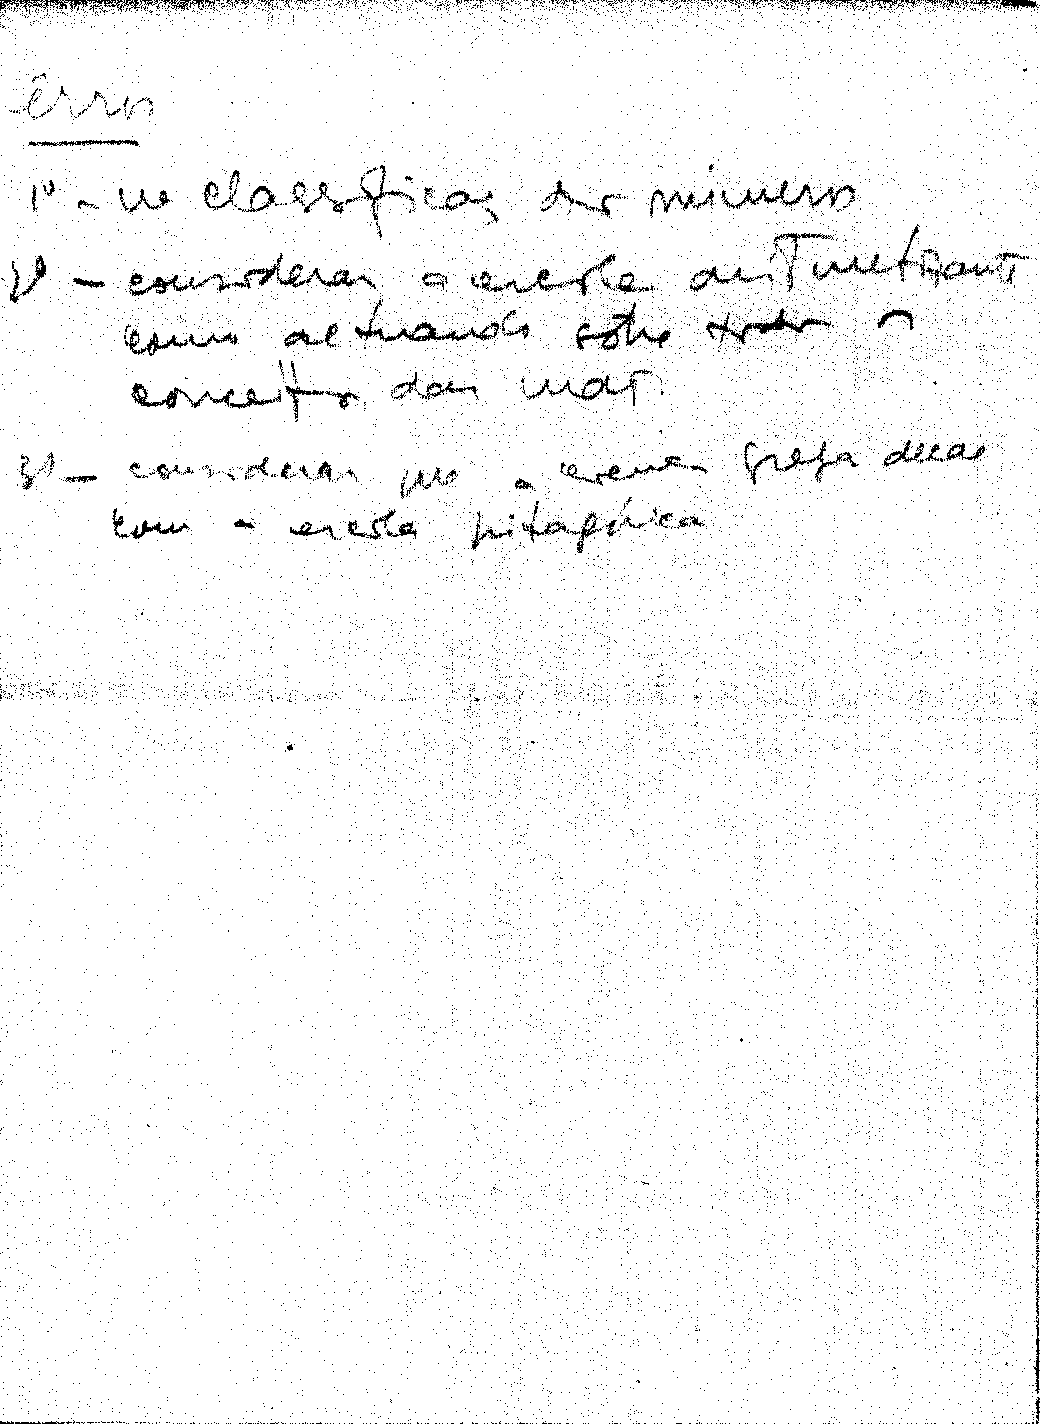 êrros
1º - na classificaç dos números
2º - considerar a escola aritmetizante
como actuando sôbre todos os
conceitos da mat.
3º - considerar que a ciencia grega decae
com a escola pitagórica